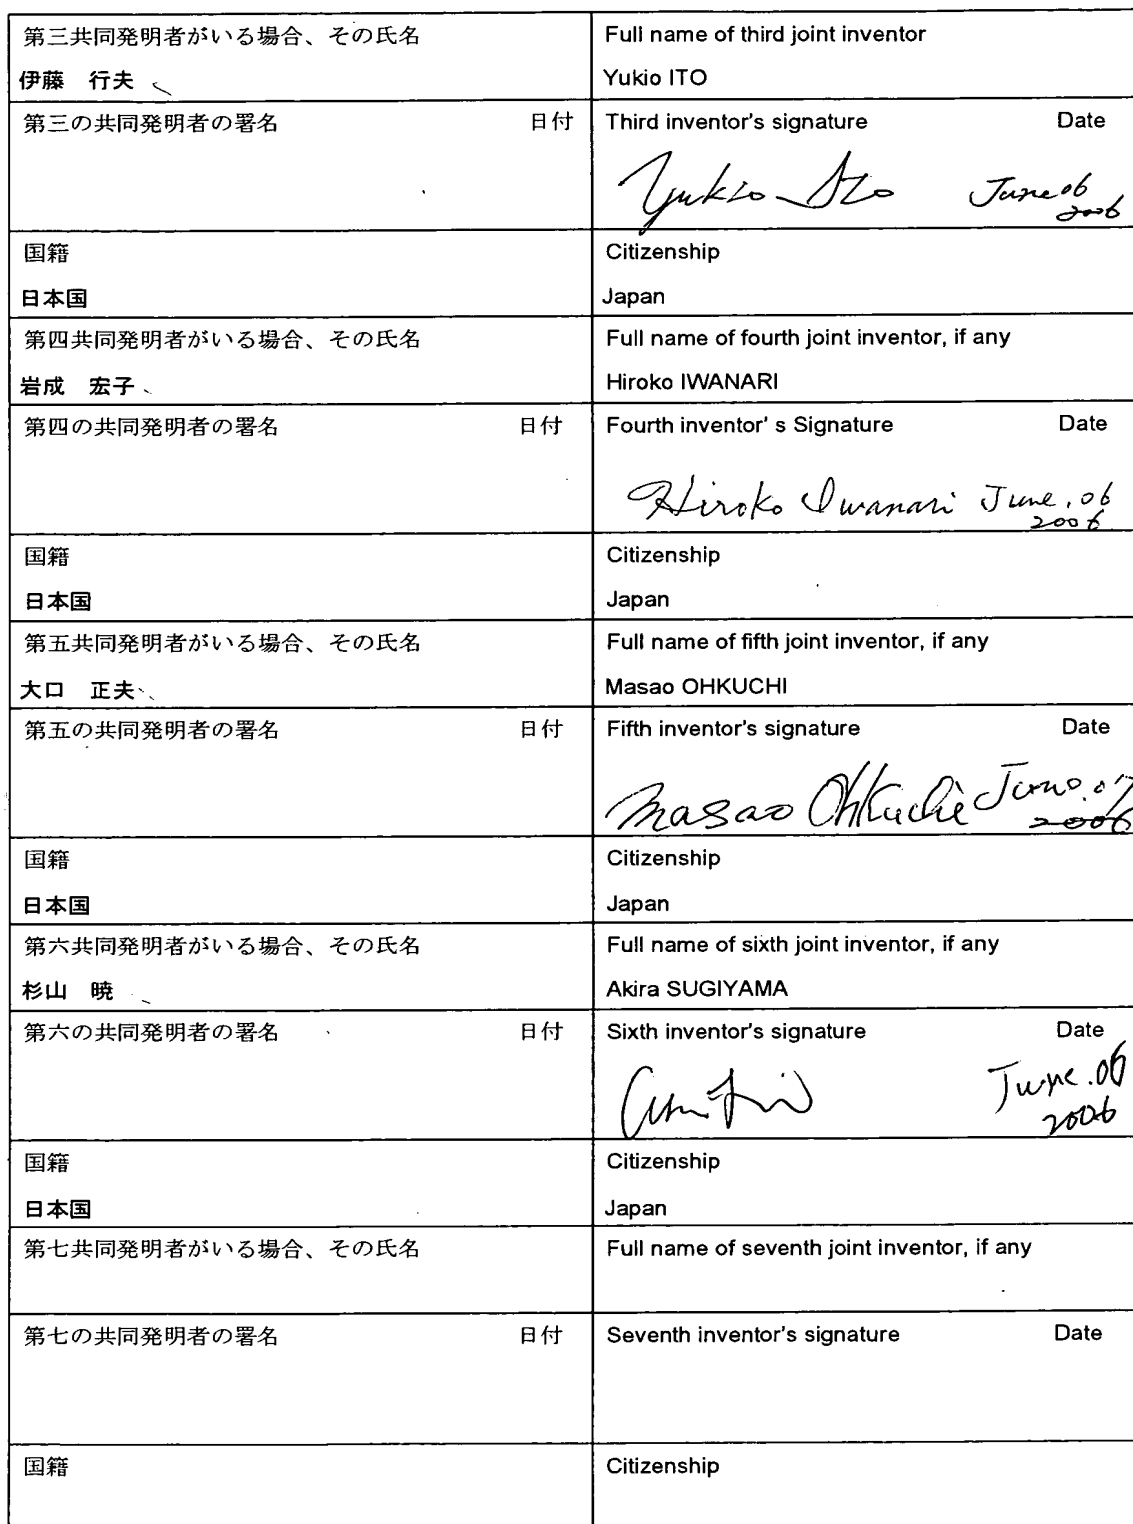 第三共同発明者がいる場合、その氏名
Full name of third joint inventor
伊藤 行夫
Yukio ITO
第三の共同発明者の署名 日付
Third inventor's signature Date
Yukio Ito June 06
2006
国籍
Citizenship
日本国
Japan
第四共同発明者がいる場合、その氏名
Full name of fourth joint inventor, if any
岩成 宏子
Hiroko IWANARI
第四の共同発明者の署名 日付
Fourth inventor' s Signature Date
Hiroko Iwanari June, 06
2006
国籍
Citizenship
日本国
Japan
第五共同発明者がいる場合、その氏名
Full name of fifth joint inventor, if any
大口 正夫
Masao OHKUCHI
第五の共同発明者の署名 日付
Fifth inventor's signature Date
Masao Ohkuchi June. 07
2006
国籍
Citizenship
日本国
Japan
第六共同発明者がいる場合、その氏名
Full name of sixth joint inventor, if any
杉山 暁
Akira SUGIYAMA
第六の共同発明者の署名 日付
Sixth inventor's signature Date
June. 06
2006
国籍
Citizenship
日本国
Japan
第七共同発明者がいる場合、その氏名
Full name of seventh joint inventor, if any
第七の共同発明者の署名 日付
Seventh inventor's signature Date
国籍
Citizenship